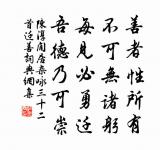 善者性所有
不可無諸躬
見善必勇迁
吾德乃可崇
陳淳閒居雜咏三十二
首迁善詞典網集